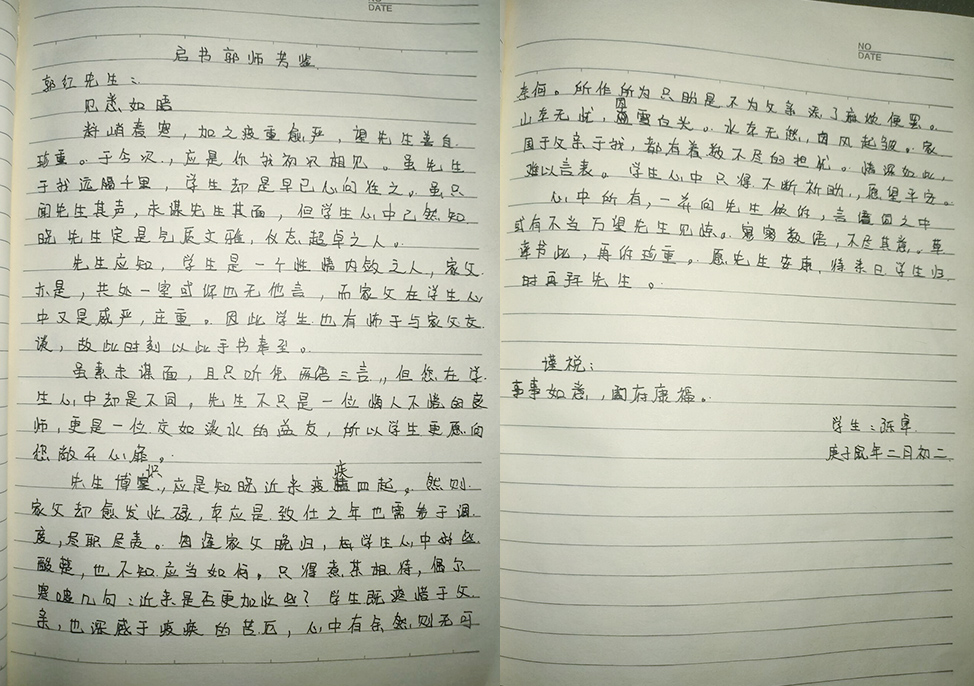 NO
DATE
启书郭师芳鉴
郭红先生：
见悉如晤
料峭春寒，加之疫重愈严，望先生善自
珍重。于今次，应是你我初次相见。虽先生
于我远隔千里，学生却是早已心向往之。虽只
闻先生其声，未谋先生其面，但学生心中已然知
晓先生定是气质文雅，仪态超卓之人。
先生应知，学生是一个性情内敛之人，家父
亦是，共处一室或你也无他言，而家父在学生心
中又是威严，庄重。因此学生也有怖于与家父交
谈，故此时刻以此手书奉至。
虽素未谋面，且只听凭两语三言，但您在学
生心中却是不同，先生不只是一位诲人不倦的良
师，更是一位交如淡水的益友，所以学生更愿向
您敞开心扉。
先生博识，应是知晓近来疫疾四起。然则
家父却愈发忙碌，本应是致仕之年也需务于调
度，尽职尽责。每逢家父晚归，在学生心中时些
酸楚，也不知应当如何。只得煮茶相待，偶尔
寒暄几句：近来是否更加忙些？学生既疼惜于父
亲，也深感于疫疾的苦厄，心中有余然则无可
NO
DATE
奈何。所作所为只盼是不为父亲添了麻烦便罢。
山本无忧，因雪白头。水本无愁，因风起皱。家
国于父亲于我，都有着数不尽的担忧。情深如此，
难以言表。学生心中只得不断祈盼，愿望平安。
心中所有，一并向先生倾的，言语之中
或有不当万望先生见谅。寥寥数语，不尽其意。草
率书此，再祈珍重。愿先生安康，待来日学生归
时再拜先生。
谨祝：
事事如意，阖府康福。
学生：张卓
庚子鼠年二月初二